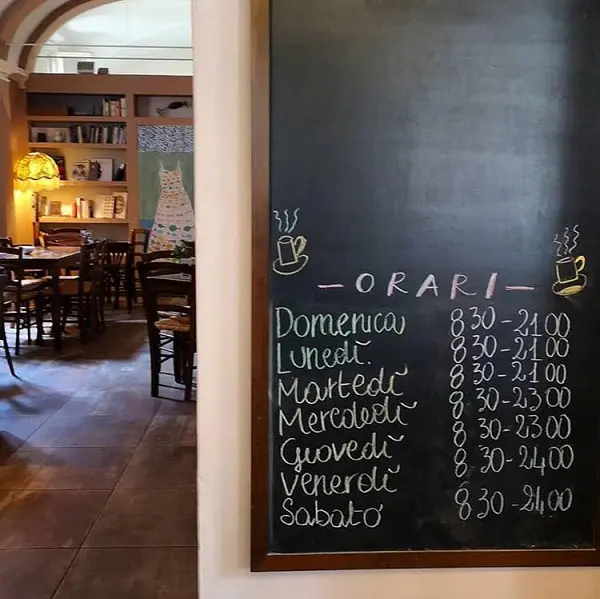 — ORARI —
Domenica 8 30 - 21 00
Lunedì 8 30 - 21 00
Martedì 8 30 - 21 00
Mercoledì 8 30 - 23 00
Giovedì 8 30 - 23 00
Venerdì 8 30 - 24 00
Sabato 8 30 - 24 00